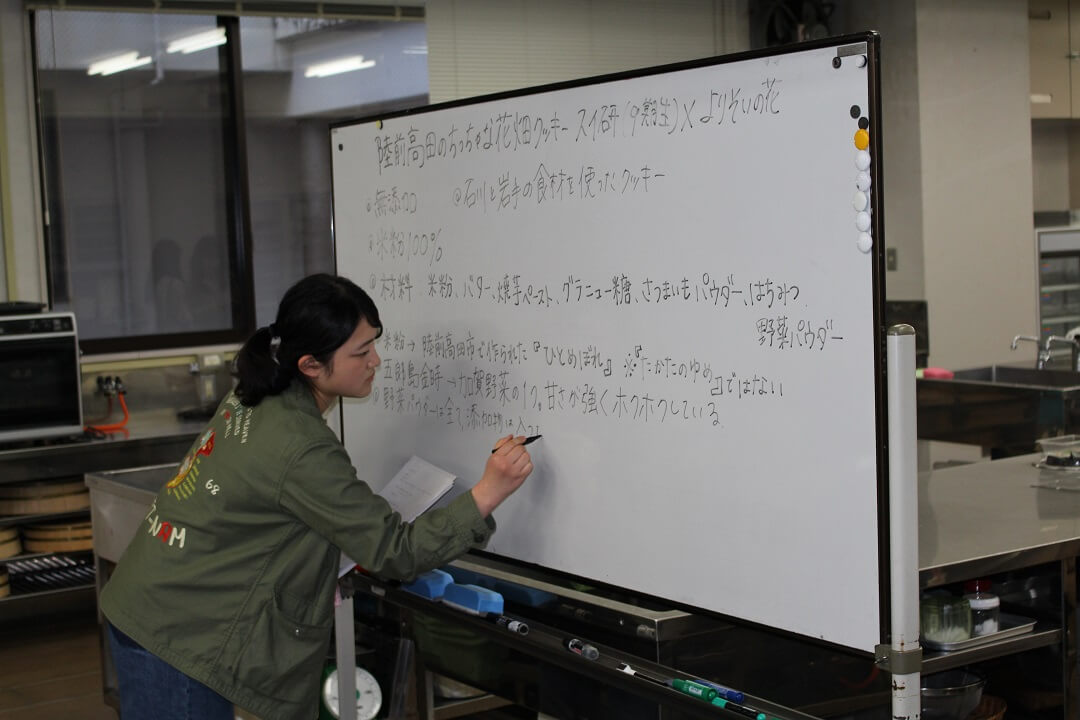 陸前高田のちっちゃな花畑クッキー スイ研(9期生)×よりそいの花
◎無添加 ◎石川と岩手の食材を使ったクッキー
◎米粉100%
◎材料 米粉、バター、焼芋ペースト、グラニュー糖、さつまいもパウダー、はちみつ
野菜パウダー
◎米粉→陸前高田市で作られた『ひとめぼれ』※『たかたのゆめ』ではない
◎五郎島金時→加賀野菜の1つ。甘さが強くホクホクしている
◎野菜パウダーは全て、添加物は入って
68
NAM